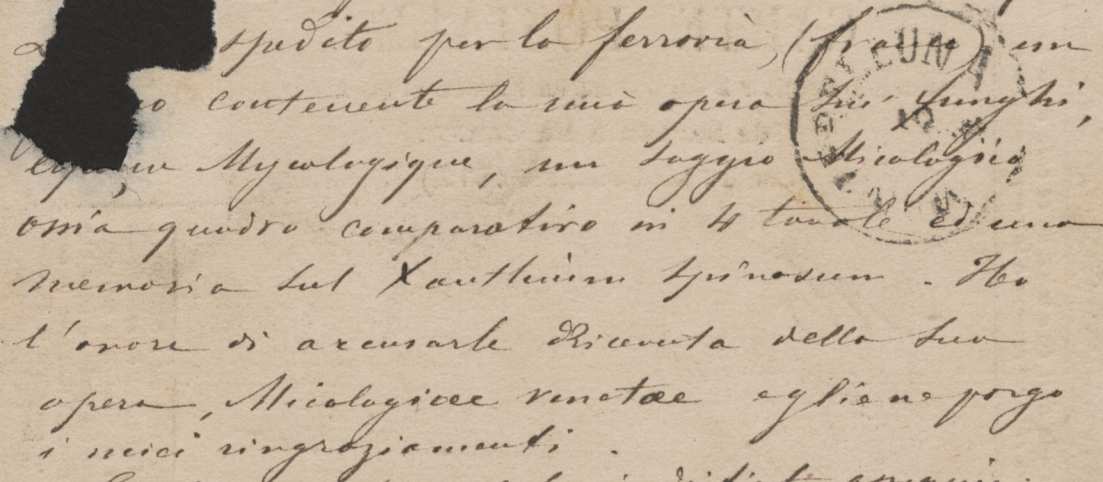 spedito per la ferrovia, (franco) un
contenente la mia opera sui funghi,
Mycologique, un saggio Micologico
ossia quadro comparativo in 4 tavole ed una
memoria sul Xanthium Spinosum. Ho
l'onore di accusarle Ricevuta della sua
opera, Micologicae venetae e gliene porgo
i miei ringraziamenti.